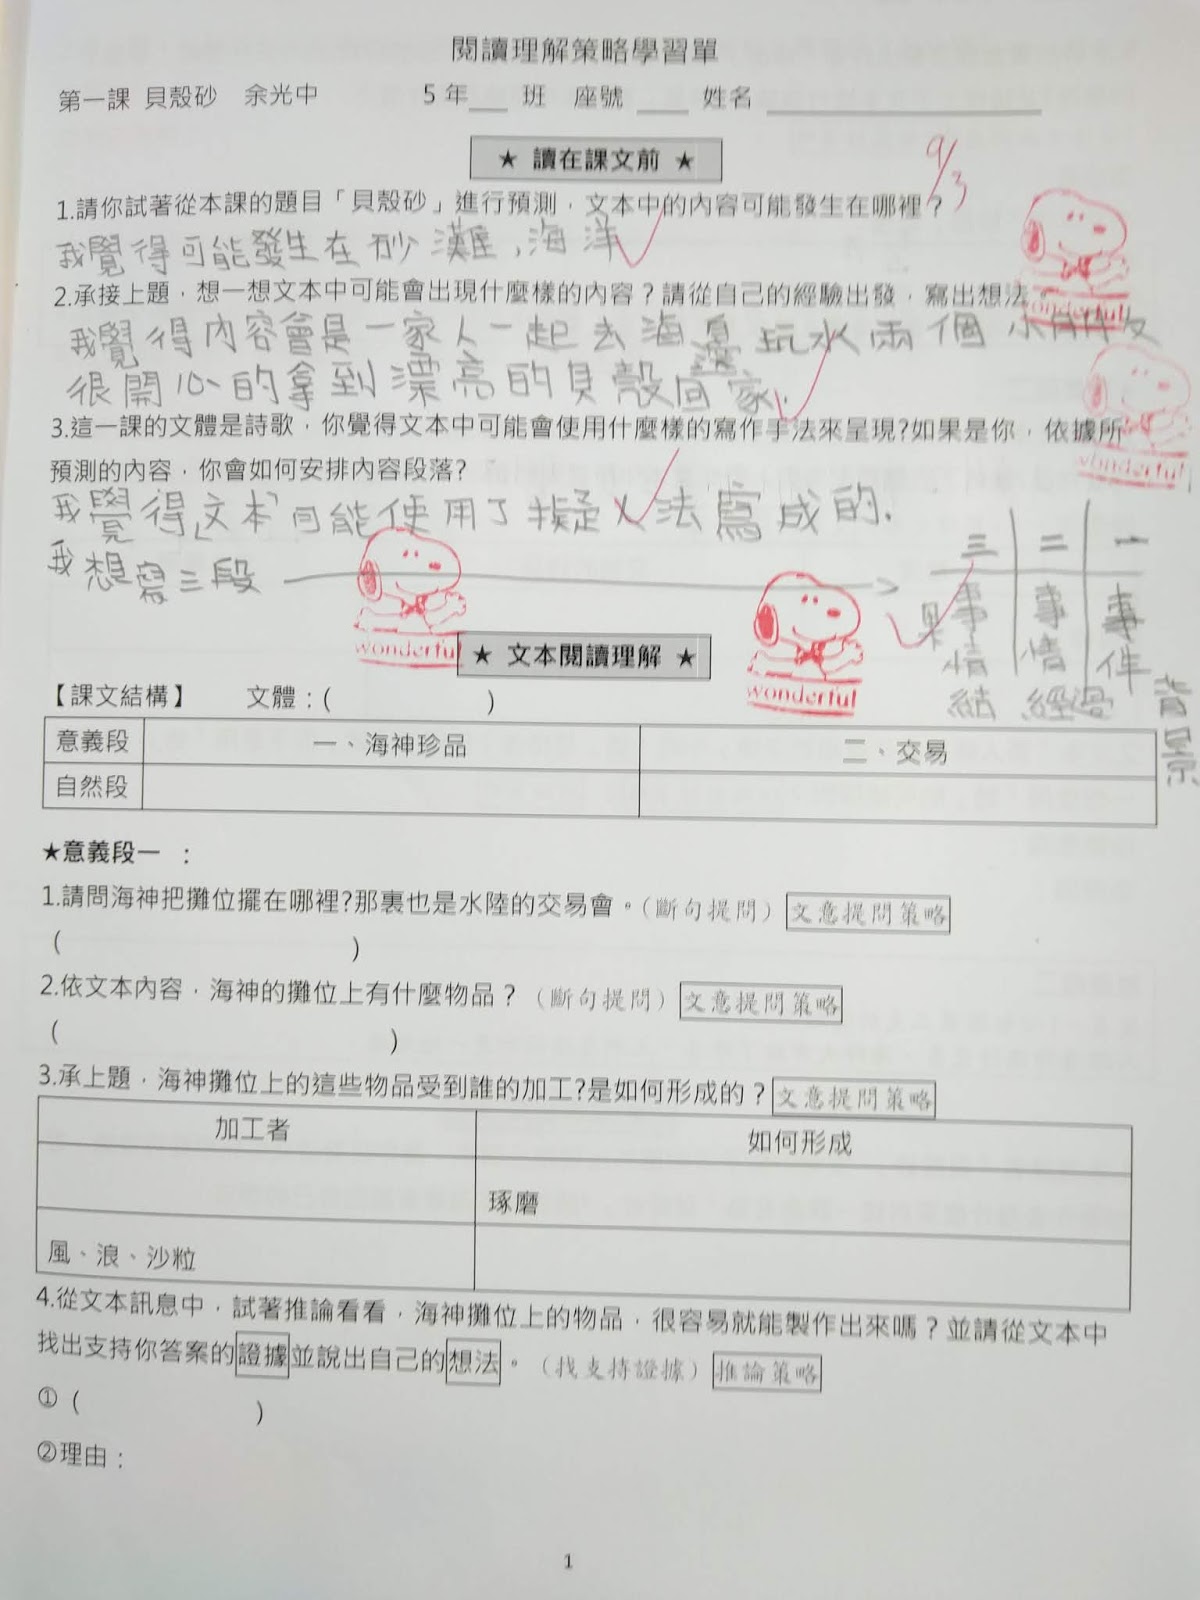 閱讀理解策略學習單
第一課 貝殼砂 余光中 5年__ 班 座號 ___ 姓名 ________________
★ 讀在課文前 ★
9/3
1.請你試著從本課的題目「貝殼砂」進行預測，文本中的內容可能發生在哪裡？
我覺得可能發生在砂灘,海洋
2.承接上題，想一想文本中可能會出現什麼樣的內容？請從自己的經驗出發，寫出想法。
wonderful
我覺得內容會是一家人一起去海邊玩水兩個小朋友
很開心的拿到漂亮的貝殼回家.
3.這一課的文體是詩歌，你覺得文本中可能會使用什麼樣的寫作手法來呈現?如果是你，依據所
wonderful
預測的內容，你會如何安排內容段落?
我覺得「文本」可能使用了擬人法寫成的.
我想寫三段
三 二 一
事情結果 事情經過 事件背景
wonderful
wonderful
★ 文本閱讀理解 ★
【課文結構】 文體：( )
意義段 一、海神珍品 二、交易
自然段
★意義段一 ：
1.請問海神把攤位擺在哪裡?那裏也是水陸的交易會。(斷句提問) 文意提問策略
( )
2.依文本內容，海神的攤位上有什麼物品？(斷句提問) 文意提問策略
( )
3.承上題，海神攤位上的這些物品受到誰的加工?是如何形成的？文意提問策略
加工者 如何形成
琢磨
風、浪、沙粒
4.從文本訊息中，試著推論看看，海神攤位上的物品，很容易就能製作出來嗎？並請從文本中
找出支持你答案的證據並說出自己的想法。(找支持證據) 推論策略
① ( )
②理由：
1